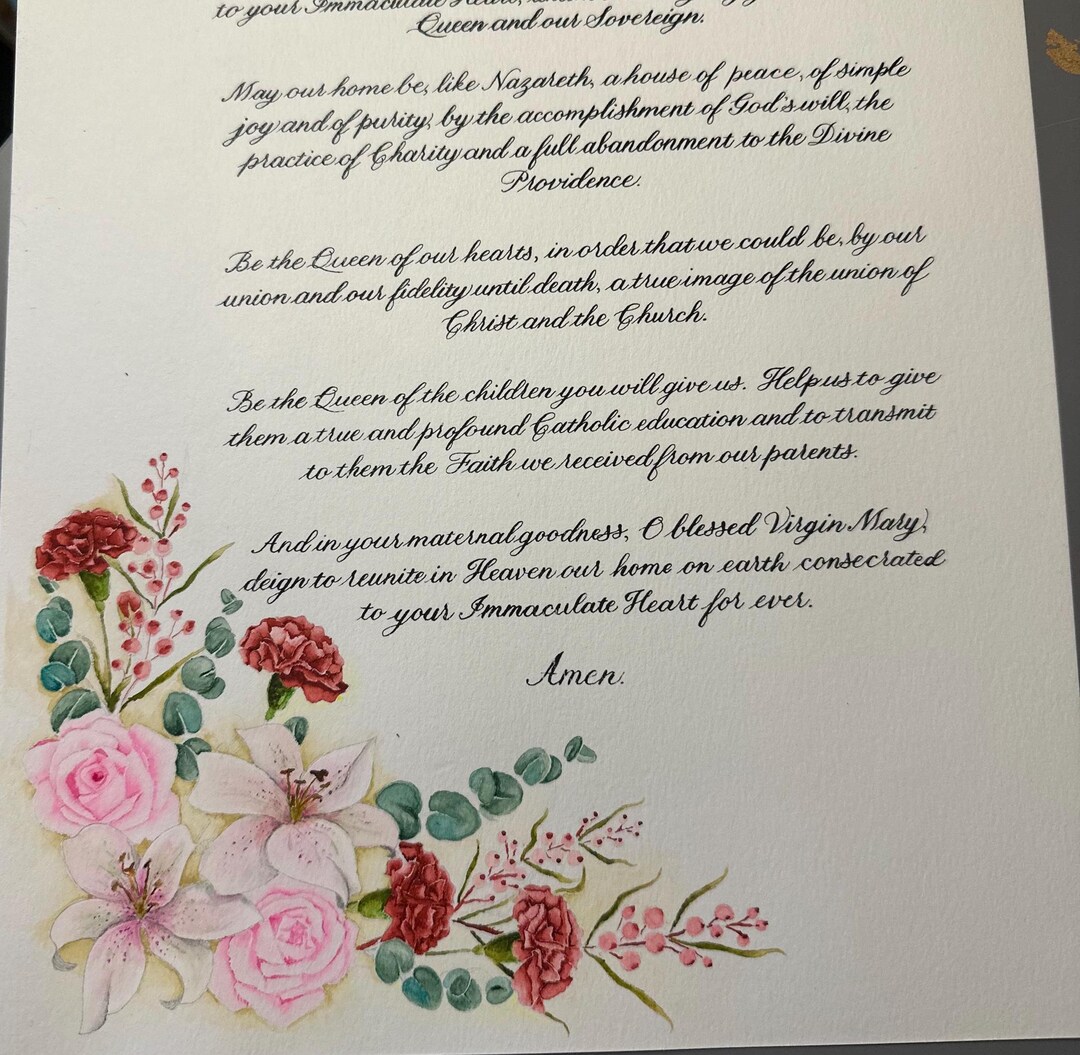 to your Immaculate Heart,
Queen and our Sovereign.
May our home be, like Nazareth, a house of peace, of simple
joy and of purity, by the accomplishment of God's will, the
practice of Charity and a full abandonment to the Divine
Providence.
Be the Queen of our hearts, in order that we could be, by our
union and our fidelity until death, a true image of the union of
Christ and the Church.
Be the Queen of the children you will give us. Help us to give
them a true and profound Catholic education and to transmit
to them the Faith we received from our parents.
And in your maternal goodness, O blessed Virgin Mary,
deign to reunite in Heaven our home on earth consecrated
to your Immaculate Heart for ever.
Amen.